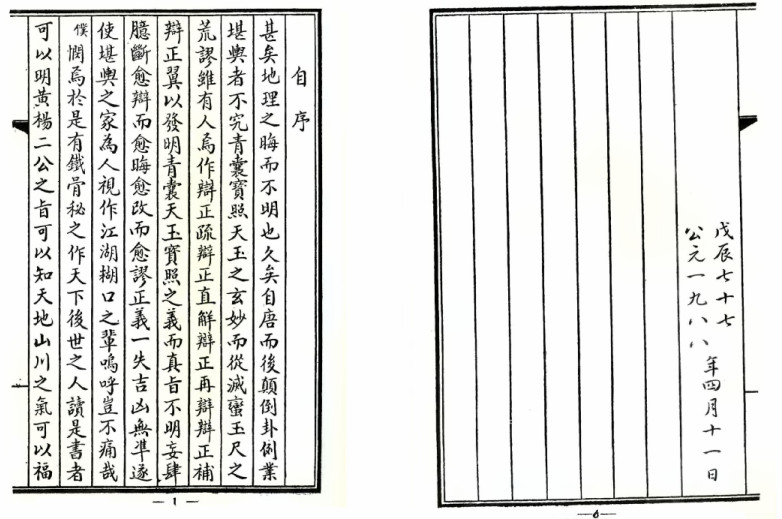 戊辰七十七
公元一九八八
年四月十一日
—6—
自序
甚矣地理之晦而不明也久矣自唐而後顛倒卦例業
堪輿者不究青囊寶照天玉之玄妙而從滅蠻玉尺之
荒謬雖有人焉作辯正疏辯正直解辯正再辯辯正補
辯正翼以發明青囊天玉寶照之義而真旨不明妄肆
臆斷愈辯而愈晦愈改而愈謬正義一失吉凶無準遂
使堪輿之家為人視作江湖糊口之輩嗚呼豈不痛哉
僕憫焉於是有鐵骨秘之作天下後世之人讀是書者
可以明黃楊二公之旨可以知天地山川之氣可以福
—1—